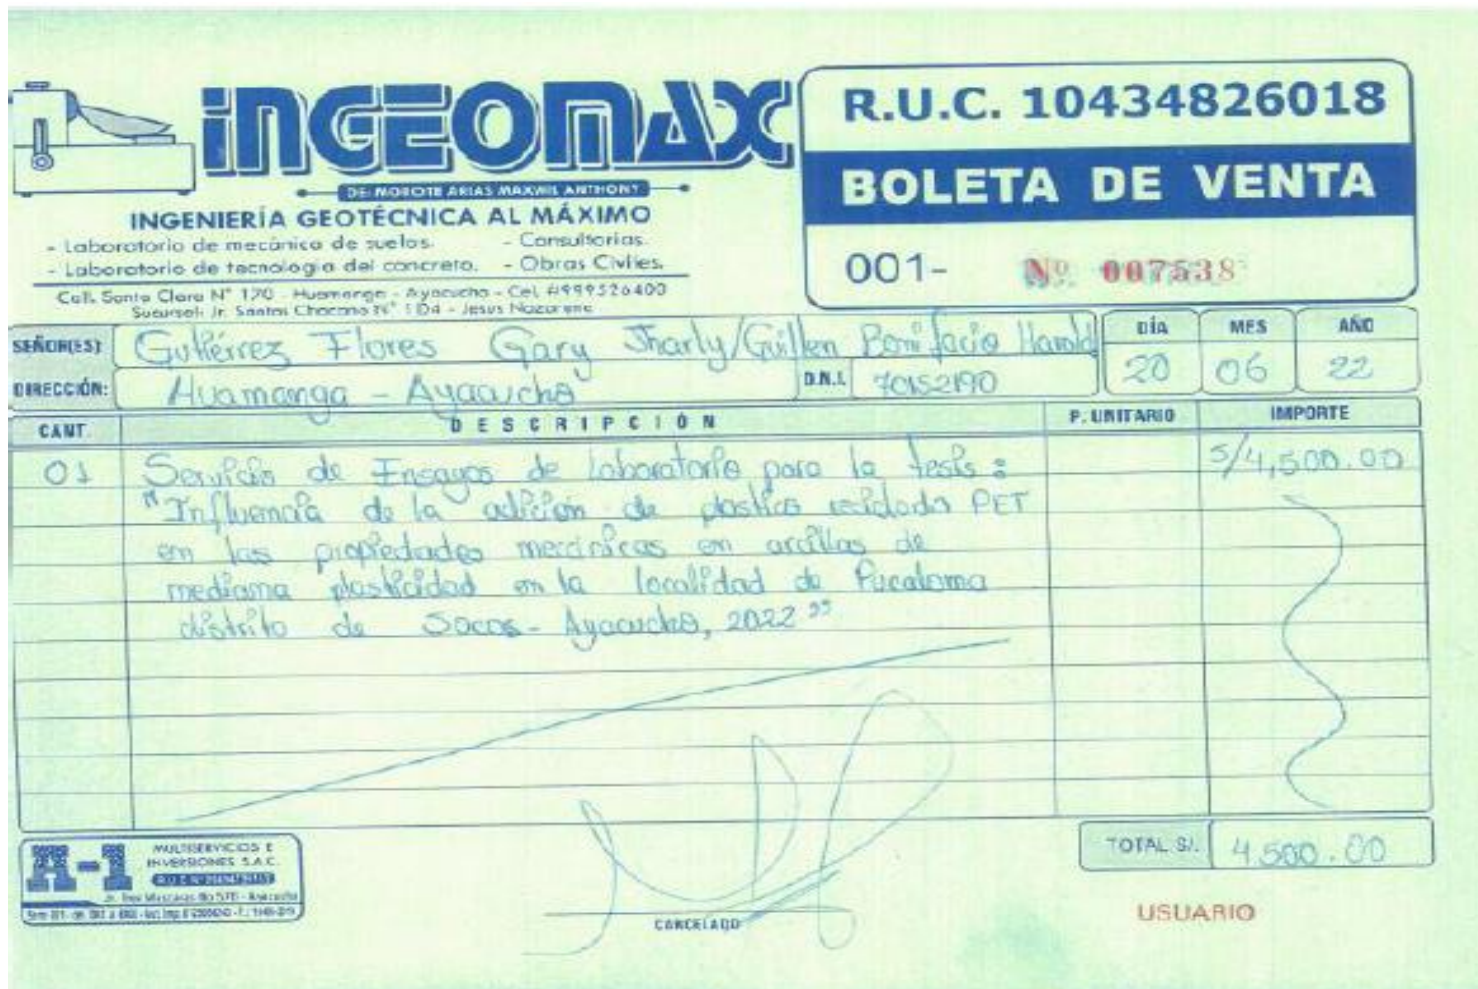 INGEOMAX
DE: MOROTE ARIAS MAXWIL ANTHONY
INGENIERÍA GEOTÉCNICA AL MÁXIMO
- Laboratorio de mecánica de suelos. - Consultorias.
- Laboratorio de tecnologia del concreto. - Obras Civiles.
Call. Santa Clara N° 170 - Huamanga - Ayacucho - Cel. #999526400
Sucursal: Jr. Santos Chocano N° 104 - Jesus Nazareno
R.U.C. 10434826018
BOLETA DE VENTA
001- Nº 007538
SEÑOR(ES): Gutiérrez Flores Gary Jharly/Guillen Bonifacio Harold
DÍA MES AÑO
20 06 22
DIRECCIÓN: Huamanga - Ayacucho D.N.I. 70152190
CANT. DESCRIPCIÓN P. UNITARIO IMPORTE
01 Servicio de Ensayos de laboratorio para la tesis: S/4,500.00
"Influencia de la adición de plastico reciclado PET
en las propiedades mecánicas en arcillas de
mediana plasticidad en la localidad de
distrito de Socos - Ayacucho, 2022"
A-1 MULTISERVICIOS E
INVERSIONES S.A.C.
CANCELADO
TOTAL S/. 4,500.00
USUARIO